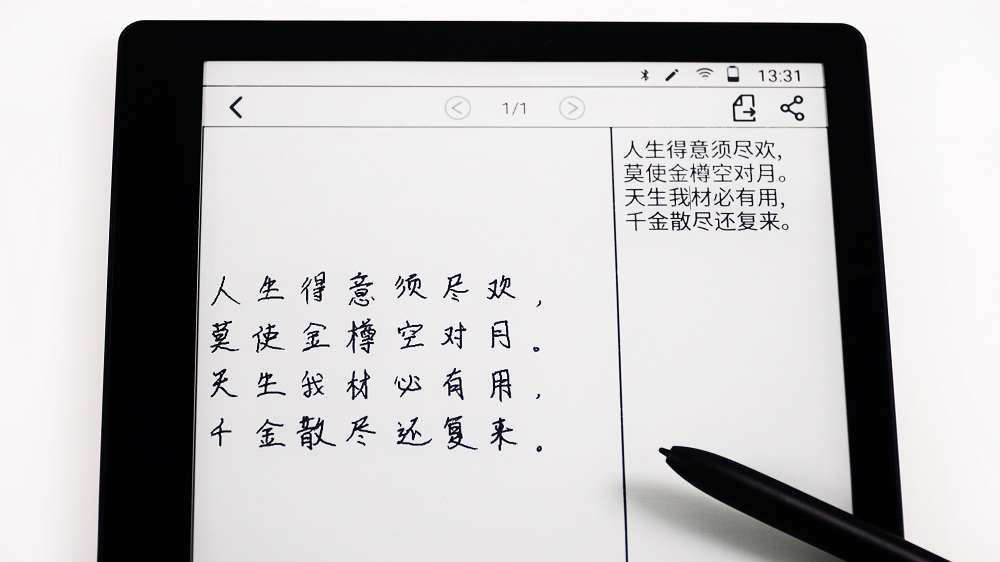 13:31
1/1
人生得意须尽欢,
莫使金樽空对月。
天生我材必有用,
千金散尽还复来。
人生得意须尽欢,
莫使金樽空对月。
天生我材必有用,
千金散尽还复来。